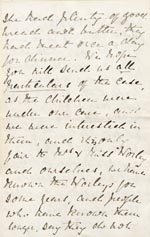 she had plenty of good
bread and butter, they
had meat once a day
for dinner. We hope
you will send us all
particulars of the case
as the children were
under our care, and
we were interested in
them, and it is only
fair to Mrs & Miss Worley
and ourselves, we have
known the Worleys for
some years, and people
who have known them
longer, say they do not